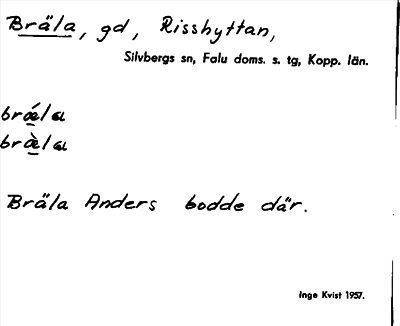 Bräla, gd, Risshyttan,
Silvbergs sn, Falu doms. s. tg, Kopp. län.
brǽla
bræ̀la
Bräla Anders bodde där.
Inge Kvist 1957.